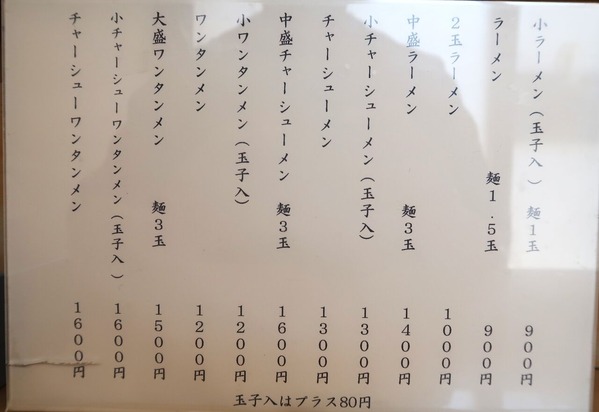 小ラーメン（玉子入）麺1玉 900円
ラーメン 麺1.5玉 900円
2玉ラーメン 1000円
中盛ラーメン 麺3玉 1400円
小チャーシューメン（玉子入） 1300円
チャーシューメン 1300円
中盛チャーシューメン 麺3玉 1600円
小ワンタンメン（玉子入） 1200円
ワンタンメン 1200円
大盛ワンタンメン 麺3玉 1500円
小チャーシューワンタンメン（玉子入） 1600円
チャーシューワンタンメン 1600円
玉子入はプラス80円